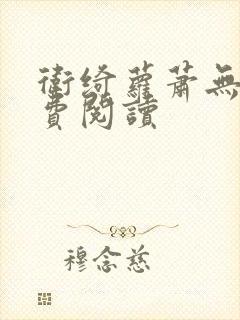 衛綺蘿蕭無
費閱讀
穆念慈